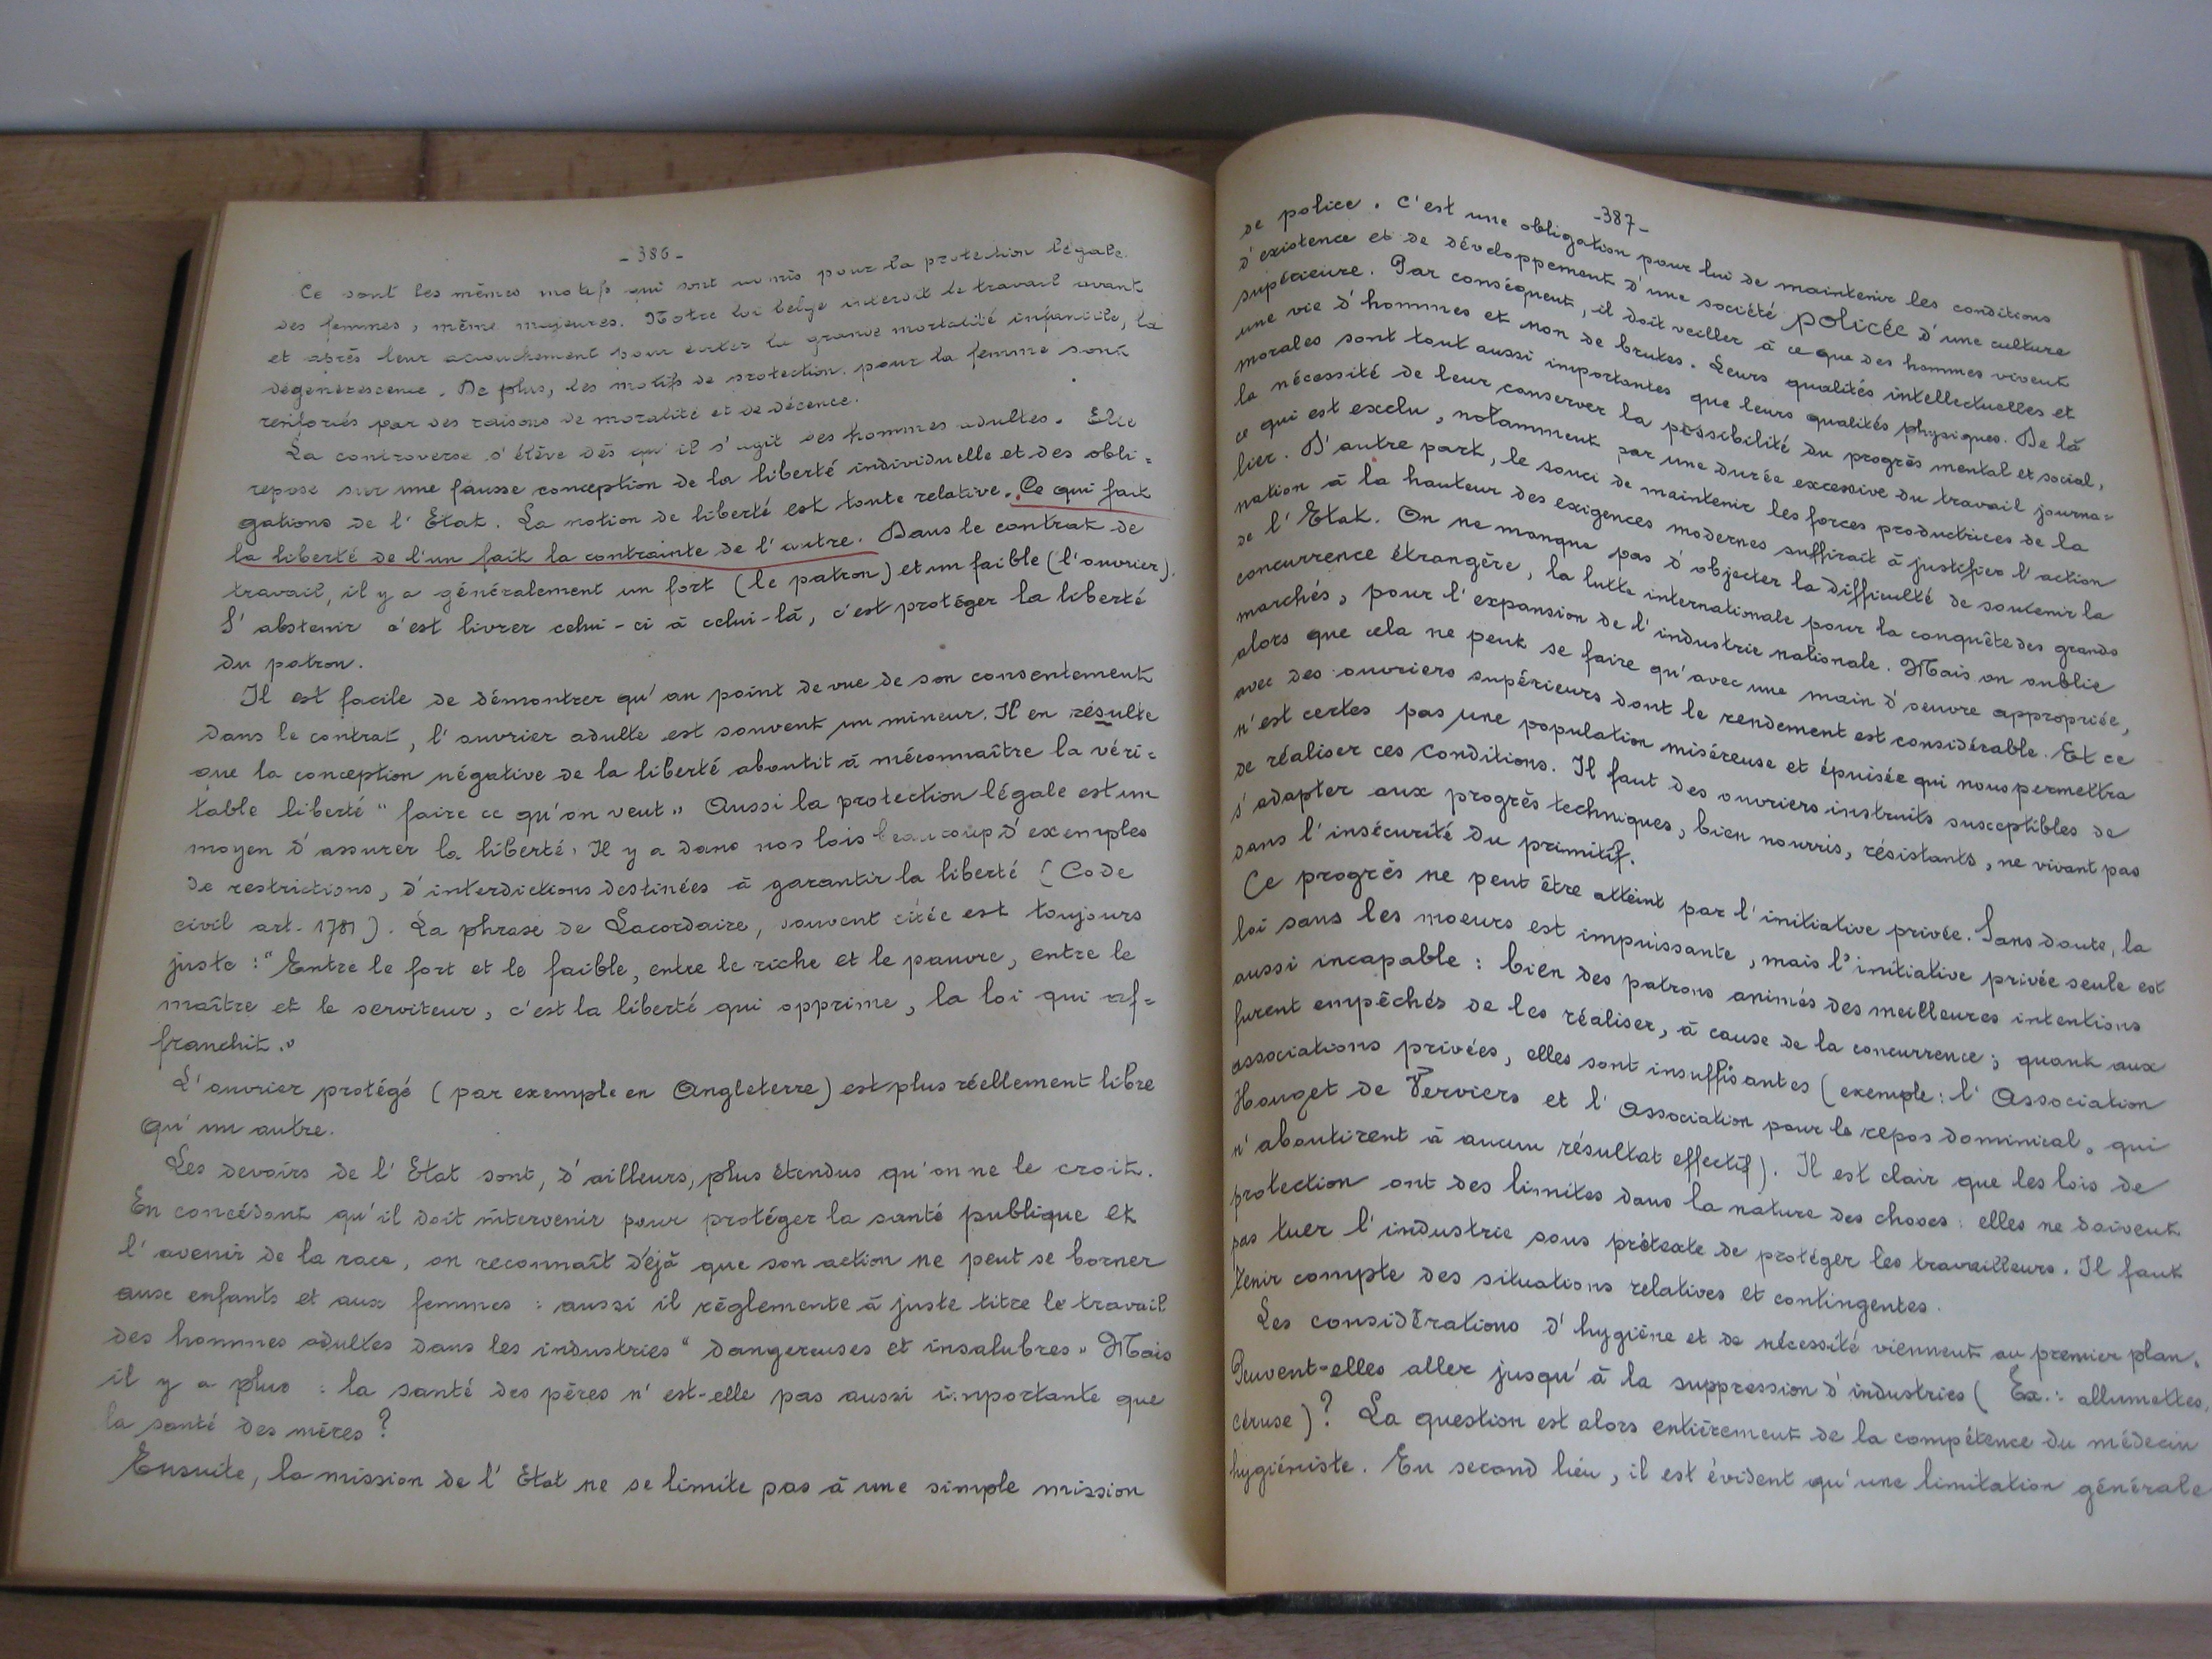 - 386 -
Ce sont les mêmes motifs qui sont admis pour la protection légale
des femmes, même majeures. Notre loi belge interdit le travail avant
et après leur accouchement pour éviter la grande mortalité infantile, la
dégénérescence. De plus, les motifs de protection pour la femme sont
renforcés par des raisons de moralité et de décence.
La controverse s'élève dès qu'il s'agit des hommes adultes. Elle
repose sur une fausse conception de la liberté individuelle et des obli=
gations de l'Etat. La notion de liberté est toute relative. Ce qui fait
la liberté de l'un fait la contrainte de l'autre. Dans le contrat de
travail, il y a généralement un fort (le patron) et un faible (l'ouvrier).
S'abstenir c'est livrer celui-ci à celui-là, c'est protéger la liberté
du patron.
Il est facile de démontrer qu'au point de vue de son consentement
dans le contrat, l'ouvrier adulte est souvent un mineur. Il en résulte
que la conception négative de la liberté aboutit à méconnaître la véri=
table liberté "faire ce qu'on veut" Aussi la protection légale est un
moyen d'assurer la liberté. Il y a dans nos lois beaucoup d'exemples
de restrictions, d'interdictions destinées à garantir la liberté (Code
civil art. 1781). La phrase de Lacordaire, souvent citée est toujours
juste : "Entre le fort et le faible, entre le riche et le pauvre, entre le
maître et le serviteur, c'est la liberté qui opprime, la loi qui af=
franchit."
L'ouvrier protégé (par exemple en Angleterre) est plus réellement libre
qu'un autre.
Les devoirs de l'Etat sont, d'ailleurs, plus étendus qu'on ne le croit.
En concédant qu'il doit intervenir pour protéger la santé publique et
l'avenir de la race, on reconnaît déjà que son action ne peut se borner
aux enfants et aux femmes : aussi il règlemente à juste titre le travail
des hommes adultes dans les industries "dangereuses et insalubres" Mais
il y a plus : la santé des pères n'est-elle pas aussi importante que
la santé des mères ?
Ensuite, la mission de l'Etat ne se limite pas à une simple mission
- 387 -
de police. C'est une obligation pour lui de maintenir les conditions
d'existence et de développement d'une société policée d'une culture
supérieure. Par conséquent, il doit veiller à ce que des hommes vivent
une vie d'hommes et non de brutes. Leurs qualités intellectuelles et
morales sont tout aussi importantes que leurs qualités physiques. De là
la nécessité de leur conserver la possibilité du progrès mental et social,
ce qui est exclu, notamment par une durée excessive du travail journa=
lier. D'autre part, le souci de maintenir les forces productrices de la
nation à la hauteur des exigences modernes suffirait à justifier l'action
de l'Etat. On ne manque pas d'objecter la difficulté de soutenir la
concurrence étrangère, la lutte internationale pour la conquête des grands
marchés, pour l'expansion de l'industrie nationale. Mais on oublie
alors que cela ne peut se faire qu'avec une main d'oeuvre appropriée,
avec des ouvriers supérieurs dont le rendement est considérable. Et ce
n'est certes pas une population miséreuse et épuisée qui nous permettra
de réaliser ces conditions. Il faut des ouvriers instruits susceptibles de
s'adapter aux progrès techniques, bien nourris, résistants, ne vivant pas
dans l'insécurité du primitif.
Ce progrès ne peut être atteint par l'initiative privée. Sans doute, la
loi sans les moeurs est impuissante, mais l'initiative privée seule est
aussi incapable : bien des patrons animés des meilleures intentions
furent empêchés de les réaliser, à cause de la concurrence ; quant aux
associations privées, elles sont insuffisantes (exemple : l'Association
Houget de Verviers et l'Association pour le repos dominical, qui
n'aboutirent à aucun résultat effectif). Il est clair que les lois de
protection ont des limites dans la nature des choses : elles ne doivent
pas tuer l'industrie sous prétexte de protéger les travailleurs. Il faut
tenir compte des situations relatives et contingentes.
Les considérations d'hygiène et de nécessité viennent au premier plan.
Peuvent-elles aller jusqu'à la suppression d'industries (Ex.: allumettes,
céruse) ? La question est alors entièrement de la compétence du médecin
hygiéniste. En second lieu, il est évident qu'une limitation générale